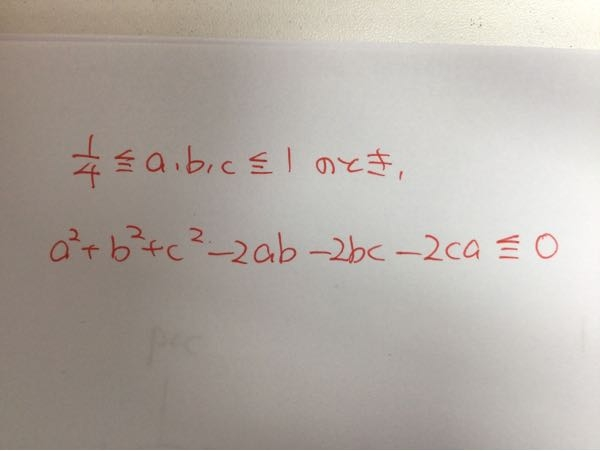 1/4 ≦ a, b, c ≦ 1 のとき,
a²+b²+c²-2ab-2bc-2ca ≦ 0